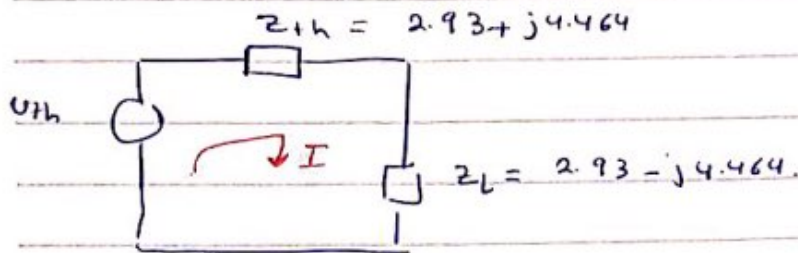 Zth = 2.93 + j4.464
Vth
I
ZL = 2.93 - j4.464.